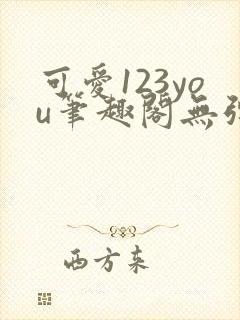 可愛123yo
u筆趣閣無彈
西方来